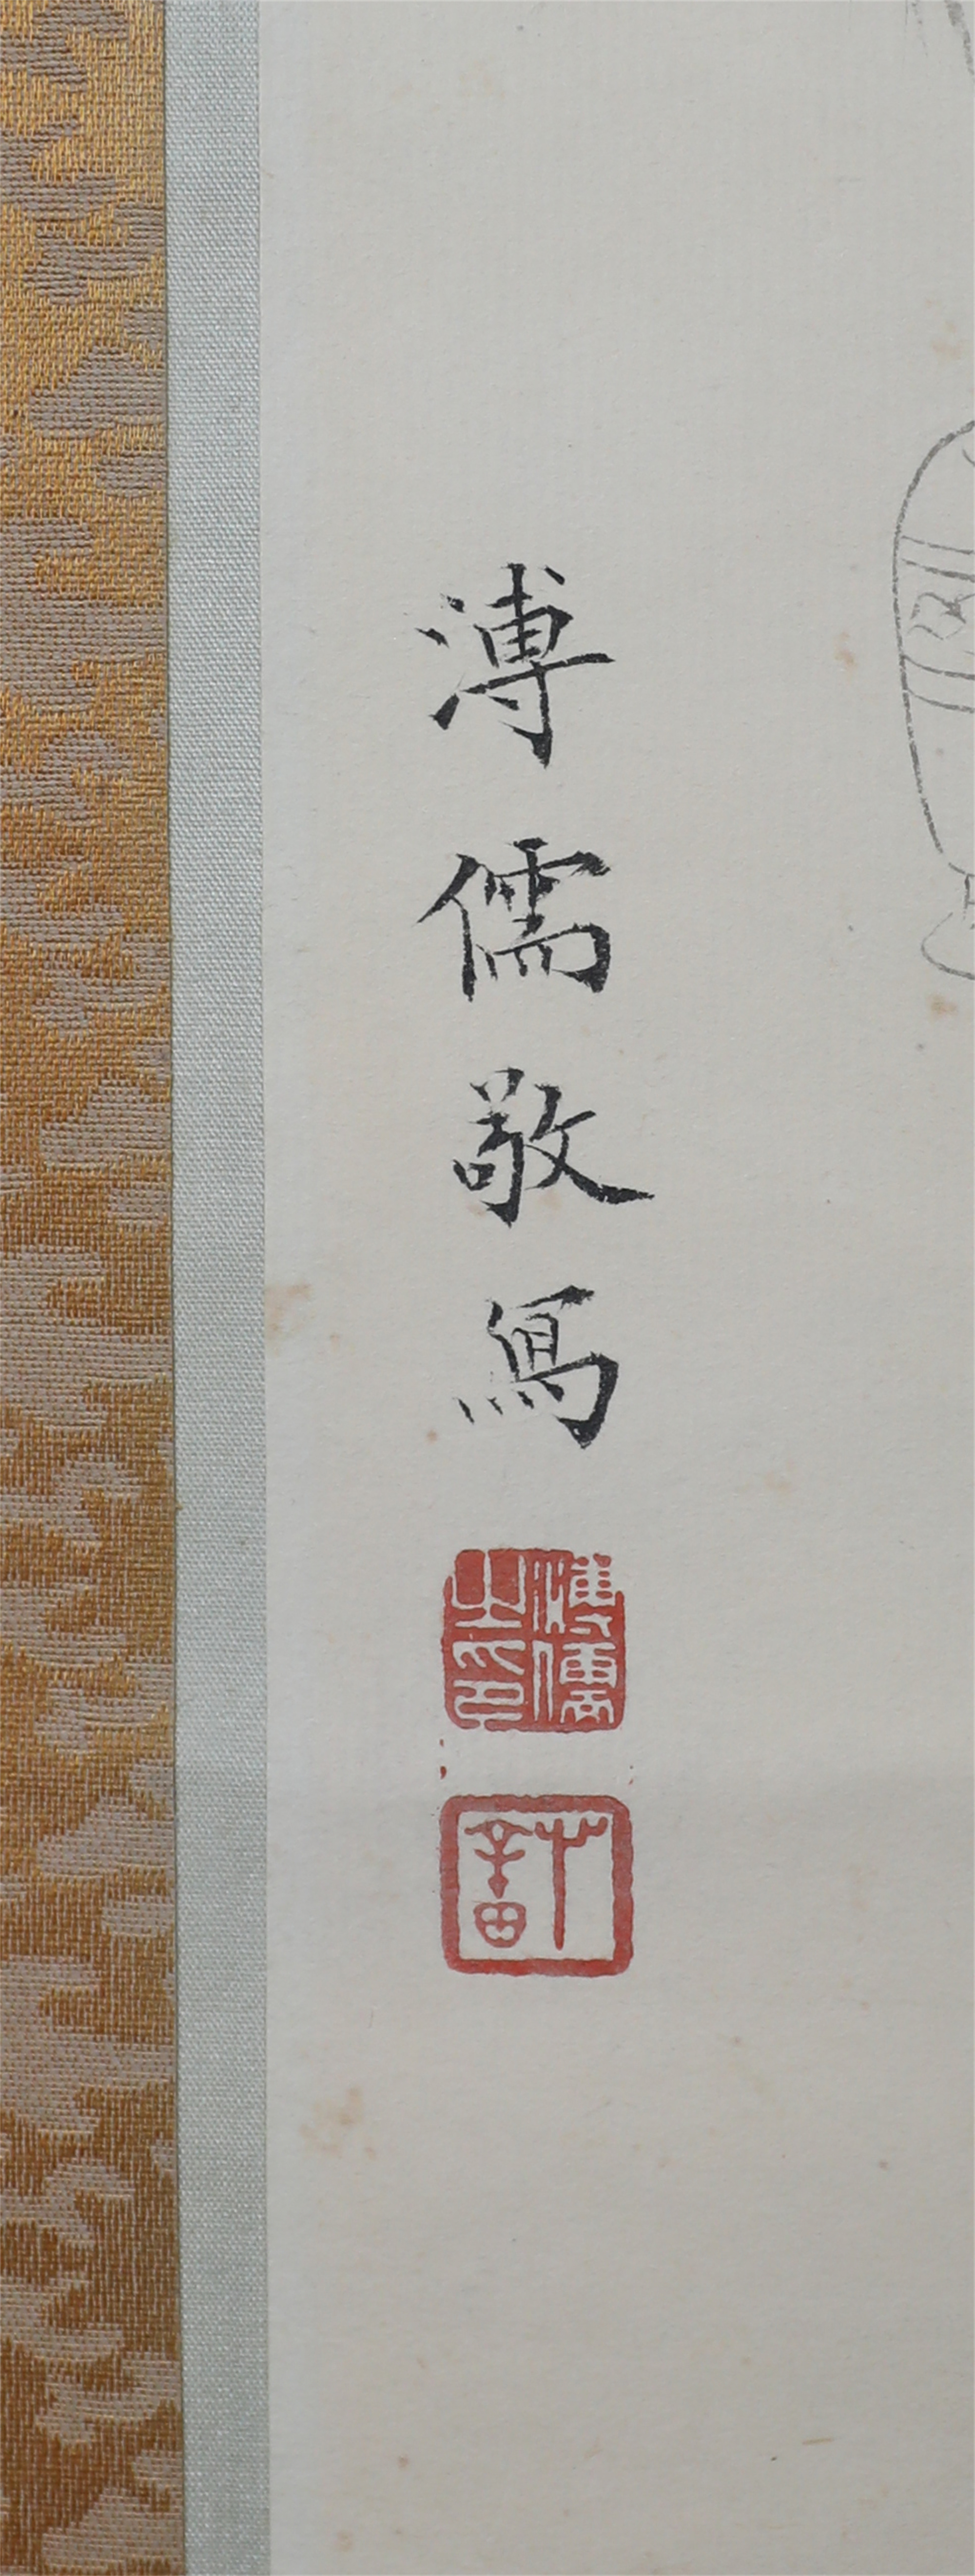 溥儒敬寫
溥儒之印